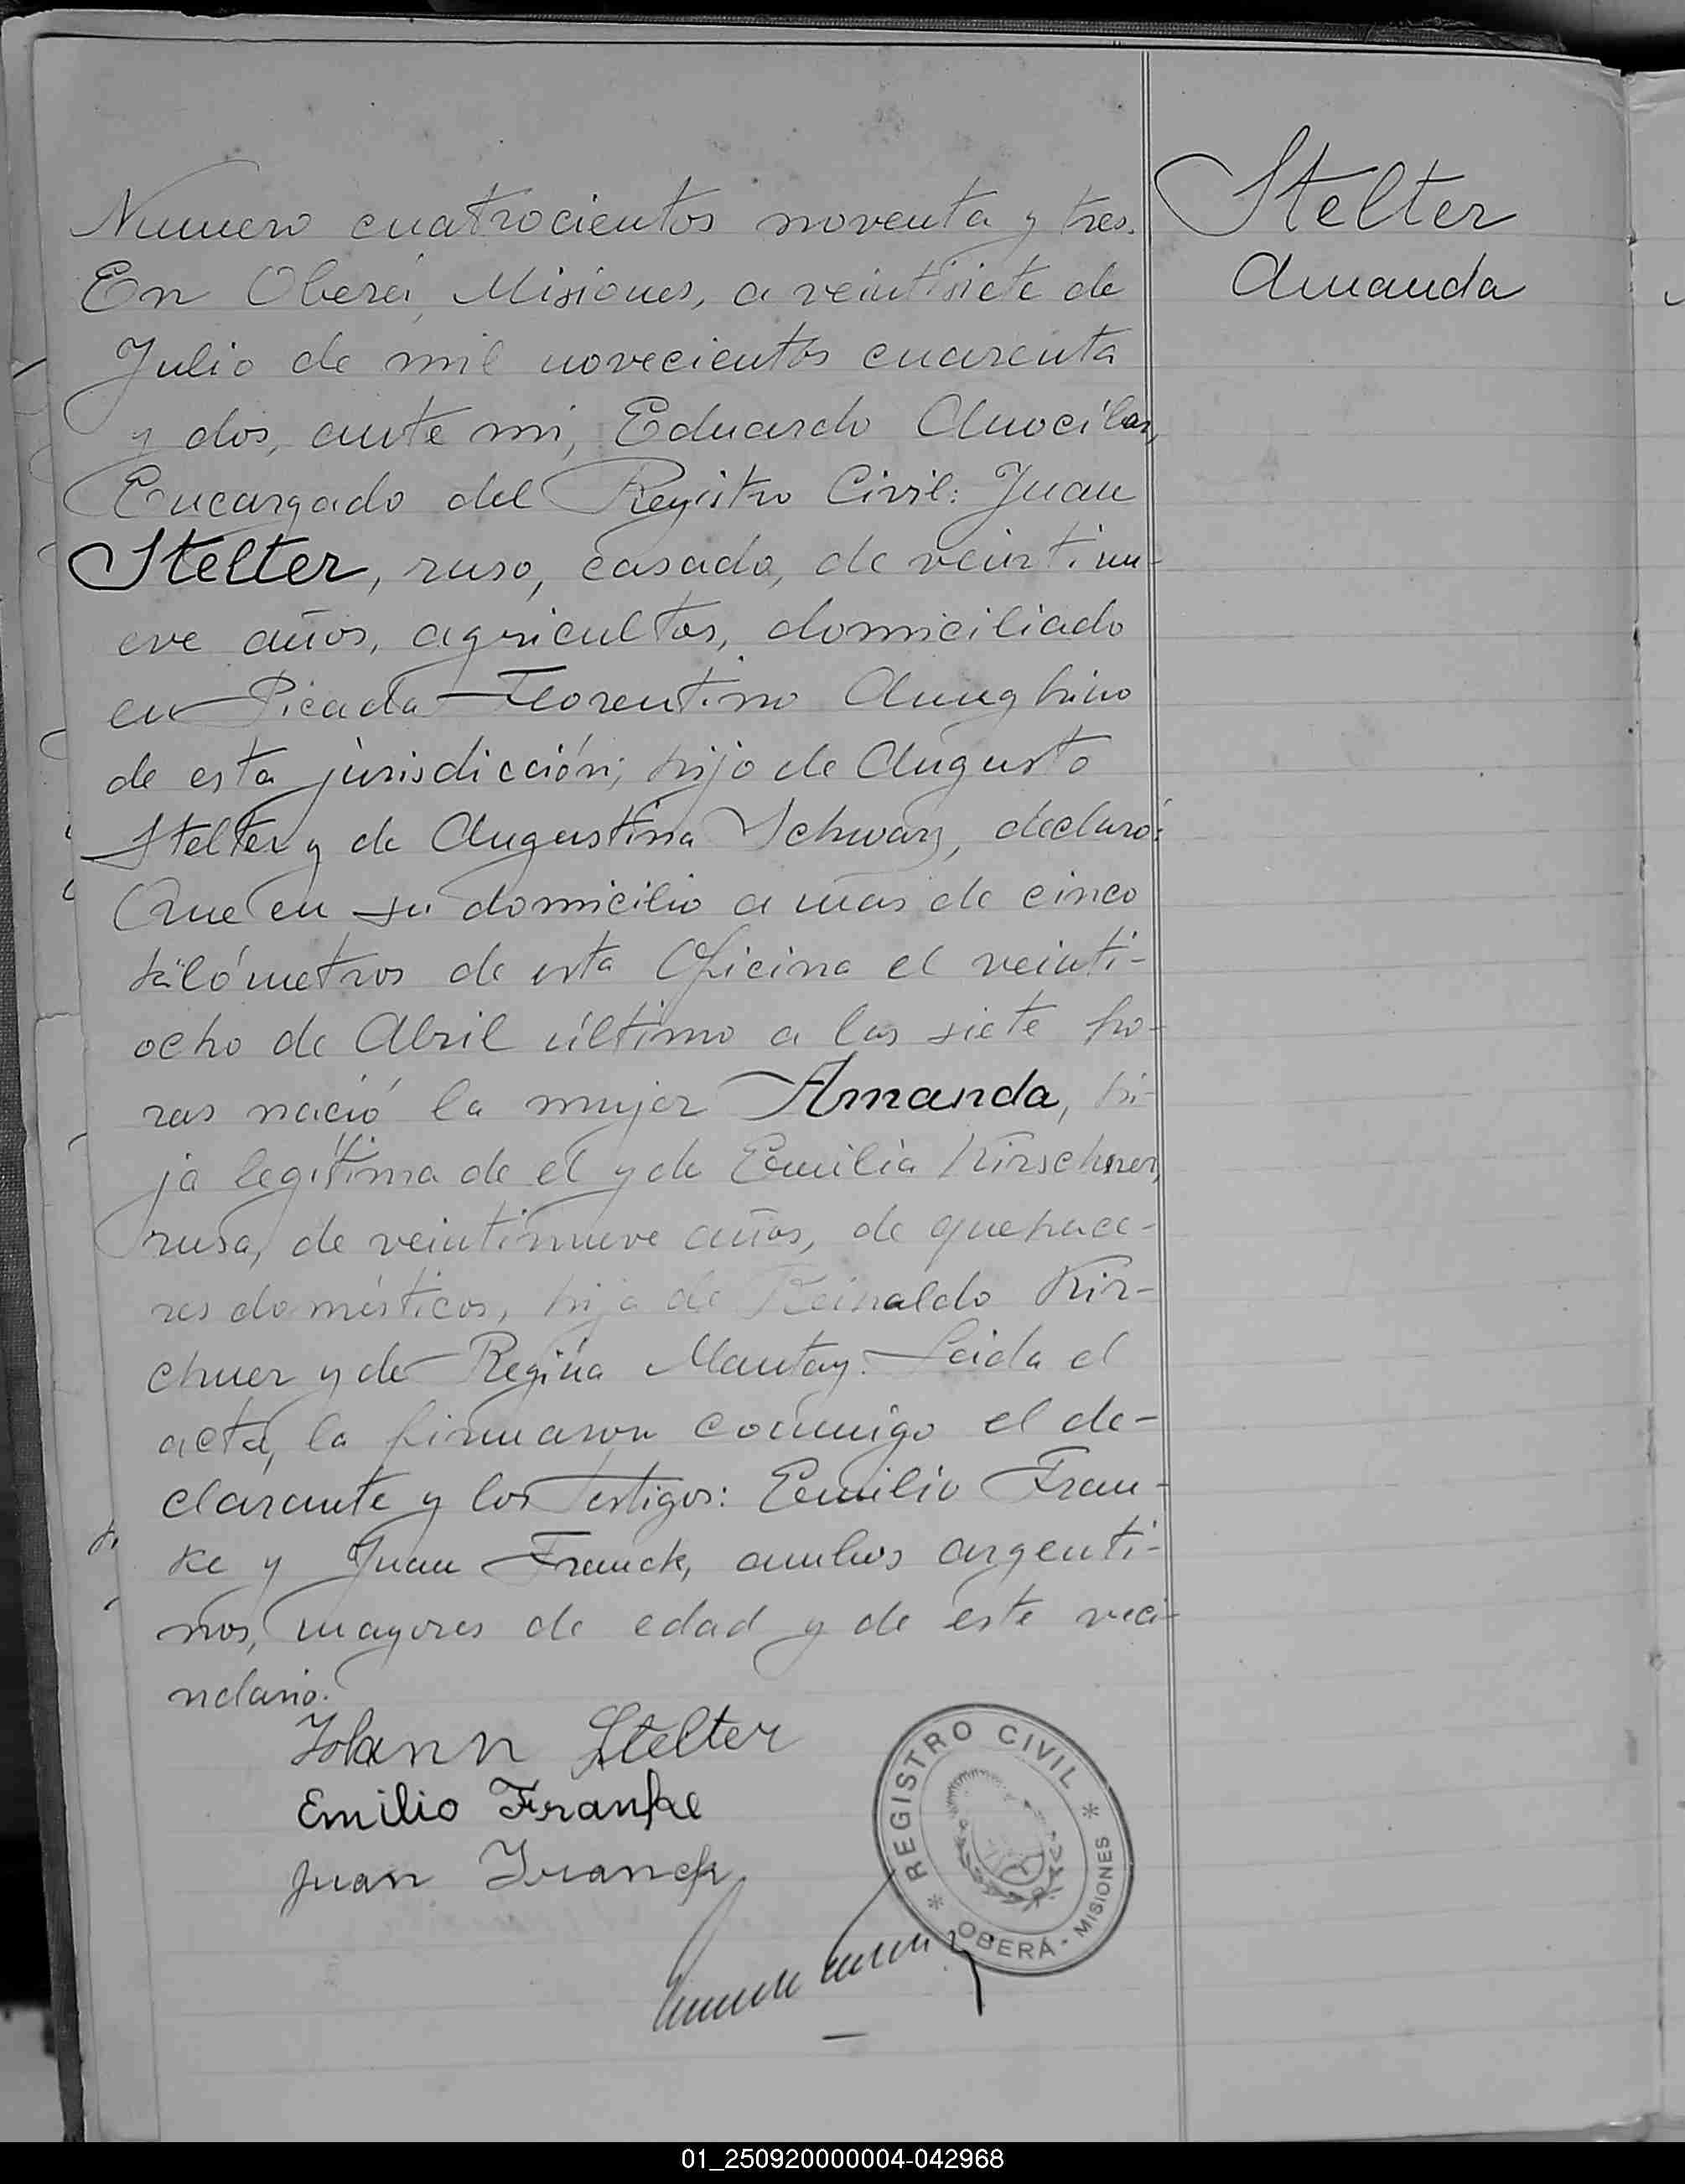 Stelter
Amanda
Numero cuatrocientos noventa y tres.
En Oberá, Misiones, a veintisiete de
Julio de mil novecientos cuarenta
y dos, ante mi, Eduardo
Encargado del Registro Civil: Juan
Stelter, ruso, casado, de veintinu-
eve años, agricultor, domiciliado
en Picada Florentino Ameghino
de esta jurisdicción; hijo de Augusto
Stelter y de Augustina Schwarz, declaró:
Que en su domicilio a mas de cinco
kilómetros de esta Oficina el veinti-
ocho de Abril último a las siete ho-
ras nació la mujer Amanda, hi-
ja legítima de el y de Emilia Kirschner,
rusa, de veintinueve años, de quehace-
res domésticos, hija de Reinaldo Kir-
chner y de Regina Mantay. Leida el
acta, la firmaron conmigo el de-
clarante y los testigos: Emilio Fran-
ke y Juan Franck, ambos argenti-
nos, mayores de edad y de este veci-
ndario.
Johann Stelter
Emilio Franke
Juan Franck
* REGISTRO CIVIL *
OBERÁ - MISIONES
01_250920000004-042968